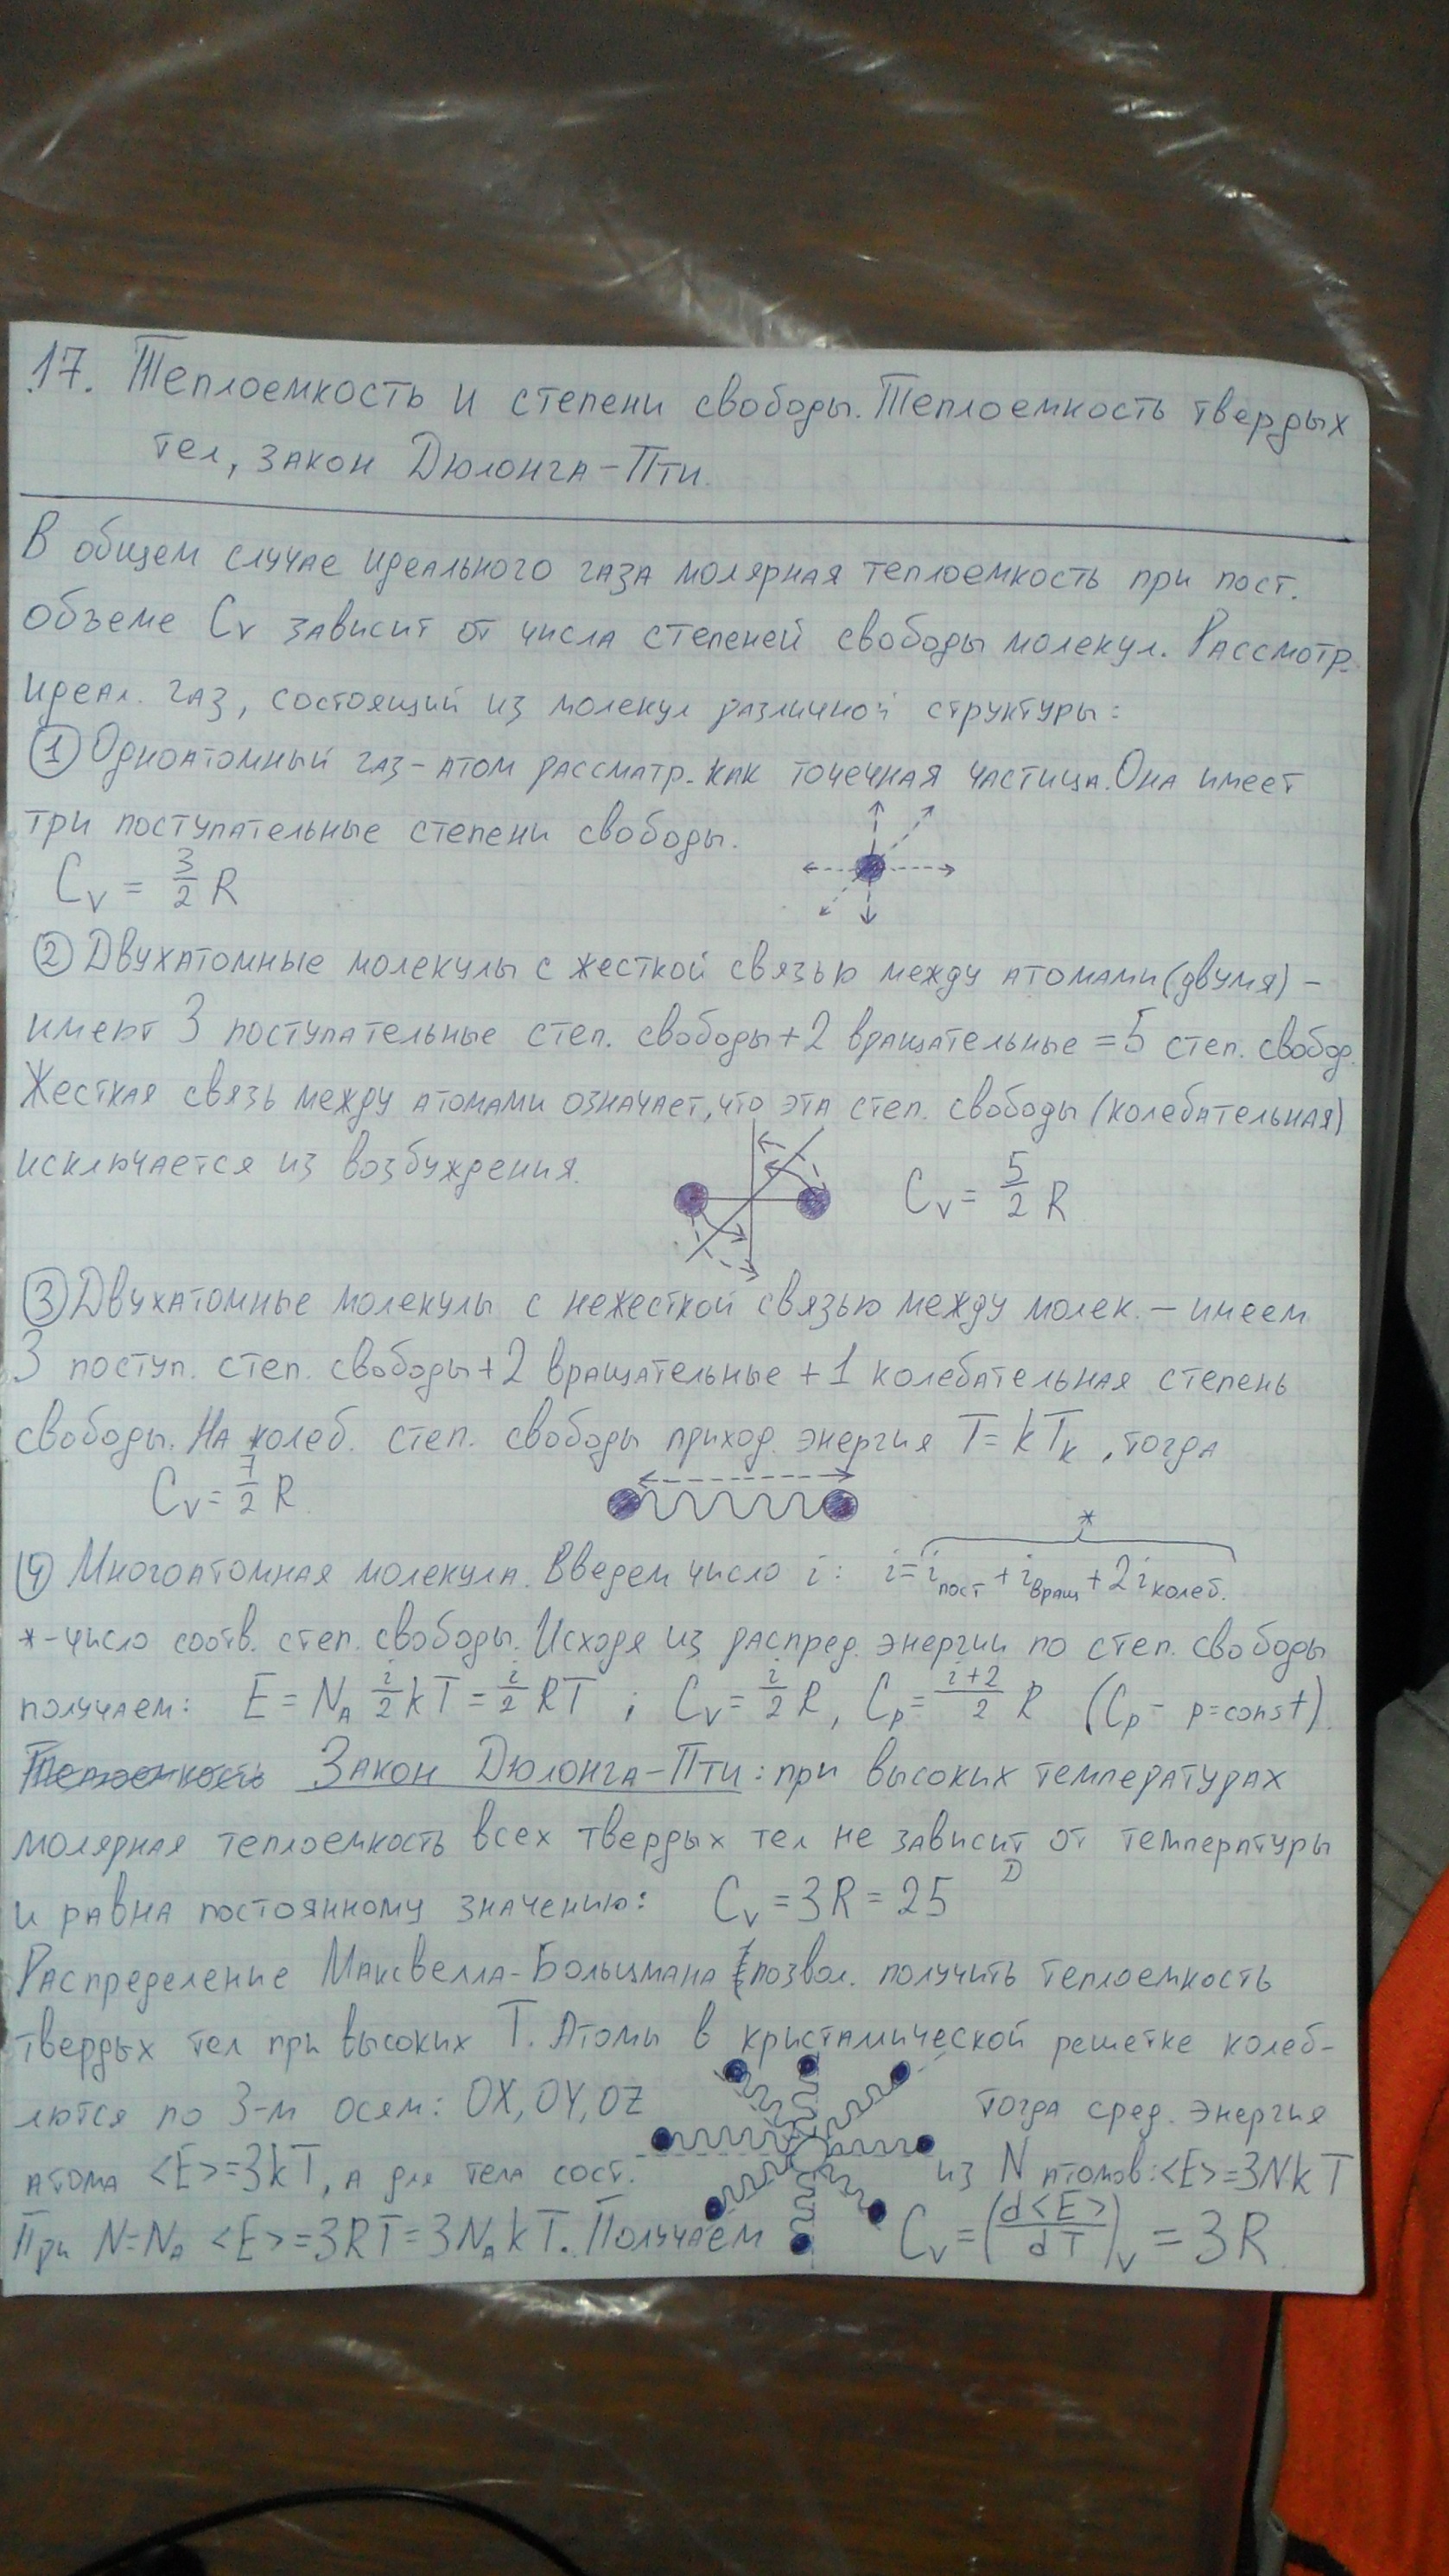 17. Теплоемкость и степени свободы. Теплоемкость твердых
тел, закон Дюлонга-Пти.
В общем случае идеального газа молярная теплоемкость при пост.
объеме Cv зависит от числа степеней свободы молекул. Рассмотр.
идеал. газ, состоящий из молекул различной структуры:
① Одноатомный газ - атом рассматр. как точечная частица. Она имеет
три поступательные степени свободы.
Cv = 3/2 R
② Двухатомные молекулы с жесткой связью между атомами (двумя) -
имеют 3 поступательные степ. свободы + 2 вращательные = 5 степ. свобод.
Жесткая связь между атомами означает, что эта степ. свободы (колебательная)
исключается из возбуждения.
Cv = 5/2 R
③ Двухатомные молекулы с нежесткой связью между молек. - имеем
3 поступ. степ. свободы + 2 вращательные + 1 колебательная степень
свободы. На колеб. степ. свободы приход. энергия T = kTк, тогда
Cv = 7/2 R.
*
④ Многоатомная молекула. Введем число i: i = iпост + iвращ + 2iколеб.
*-число соотв. степ. свободы. Исходя из распред. энергии по степ. свободы
получаем: E = NA i/2 kT = i/2 RT ; Cv = i/2 R, Cp = i+2/2 R (Cp - p=const).
Теплоемкость Закон Дюлонга-Пти: при высоких температурах
молярная теплоемкость всех твердых тел не зависит от темперптуры
и равна постоянному значению: Cv = 3R = 25
Распределение Максвелла-Больцмана позвол. получить теплоемкость
твердых тел при высоких T. Атомы в кристаллической решетке колеб-
лются по 3-м осям: OX, OY, OZ тогда сред. энергия
атома <E>=3kT, а для тела сост. из N атомов: <E>=3NkT
При N=NA <E>=3RT=3NAkT. Получаем Cv = (d<E>/dT)v = 3R